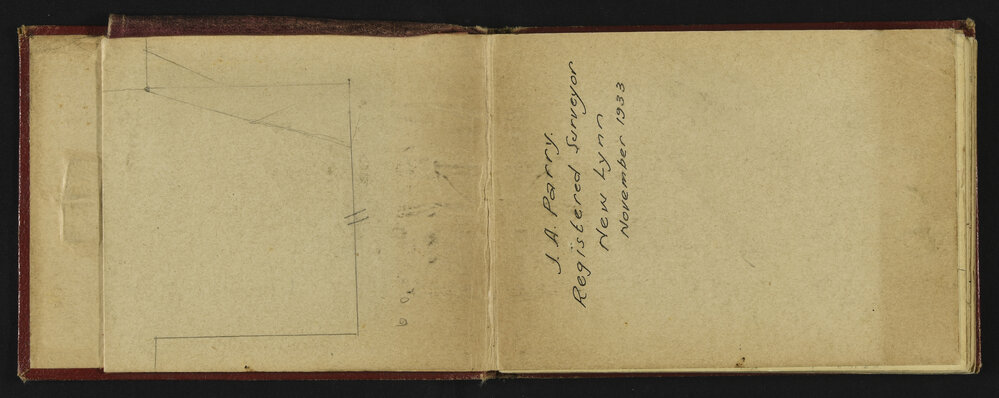 J. A. Parry.
Registered Surveyor
New Lynn
November 1933